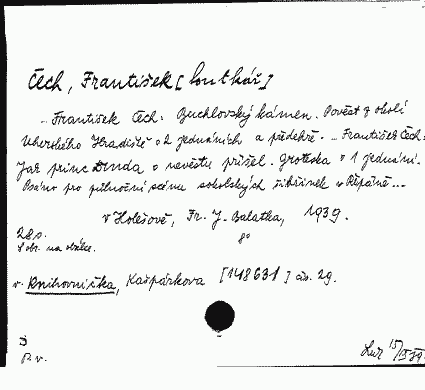 Čech, František [loutkář]
... František Čech: Buchlovský kámen. Pověst z okolí
Uherského Hradiště o 2 jednáních a předehře. - ... František Čech:
Jak princ Dunda o nevěstu přišel. Groteska o 1 jednání.
Psáno pro půlnoční scénu sokolských šibřinek v Řepíně...
v Holešově, Fr. J. Balatka, 1939.
28 s. 8°
1 obr. na obálce.
v. Knihovnička, Kašpárkova [148631] čís. 29.